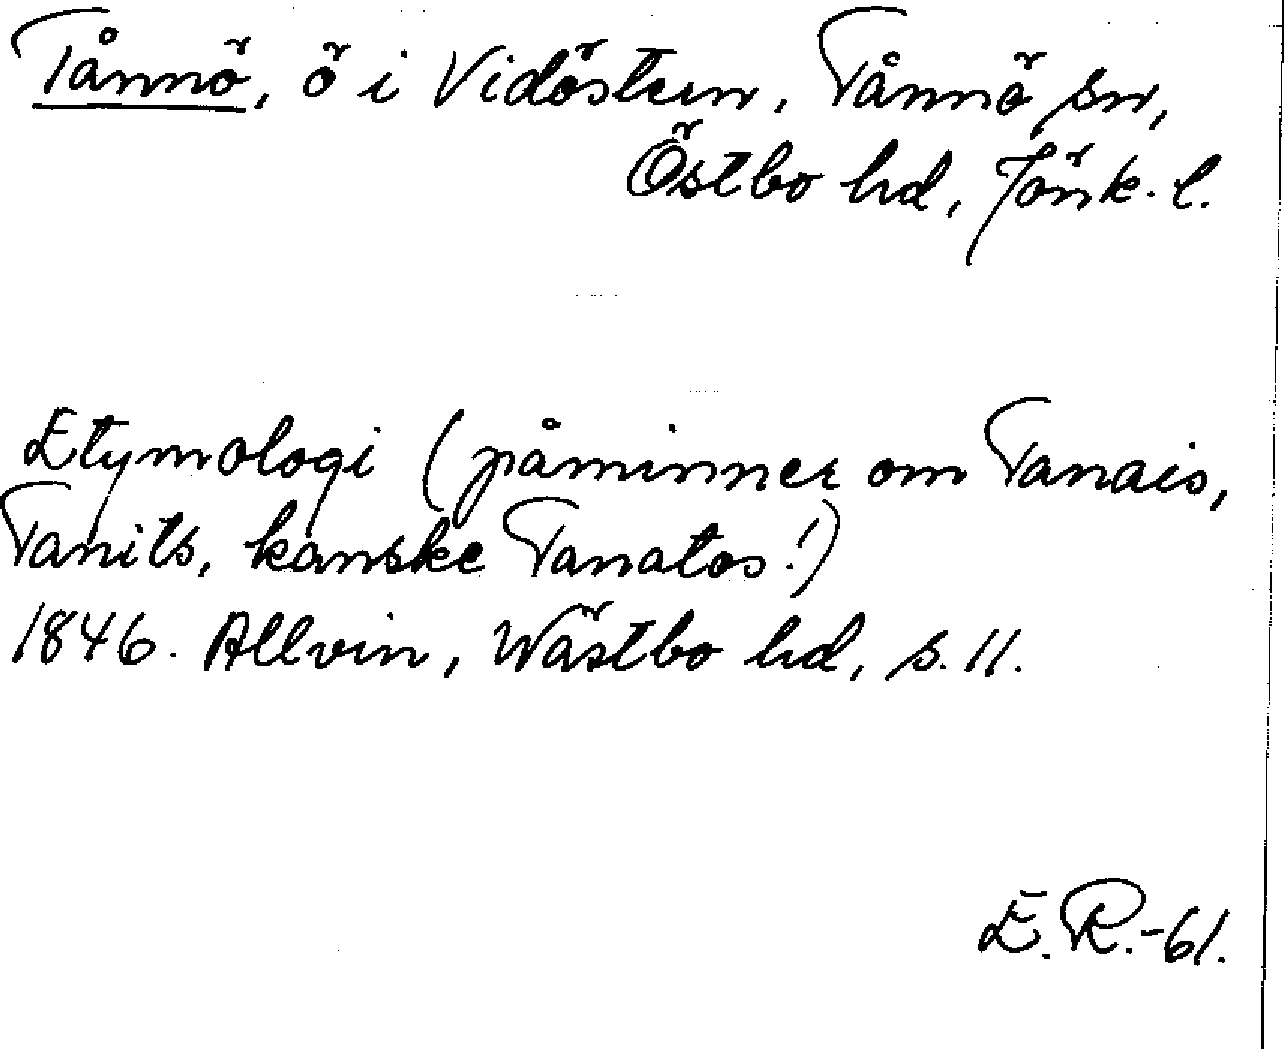 Tånnö, ö i Vidöstern, Tånnö sn,
Östbo hd, Jönk. l.
Etymologi (påminner om Tanais,
Tanits, kanske Tanatos!)
1846. Allvin, Wästbo hd, s. 11.
E. R. -61.